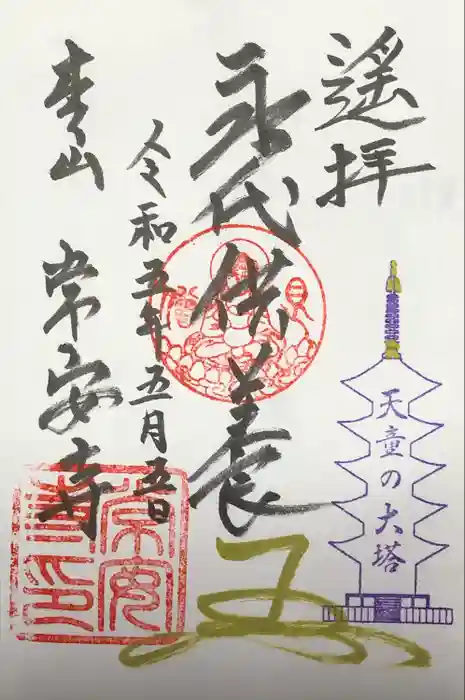 遥拝
永代供養
令和五年五月五日
常安寺
天童の大塔
五